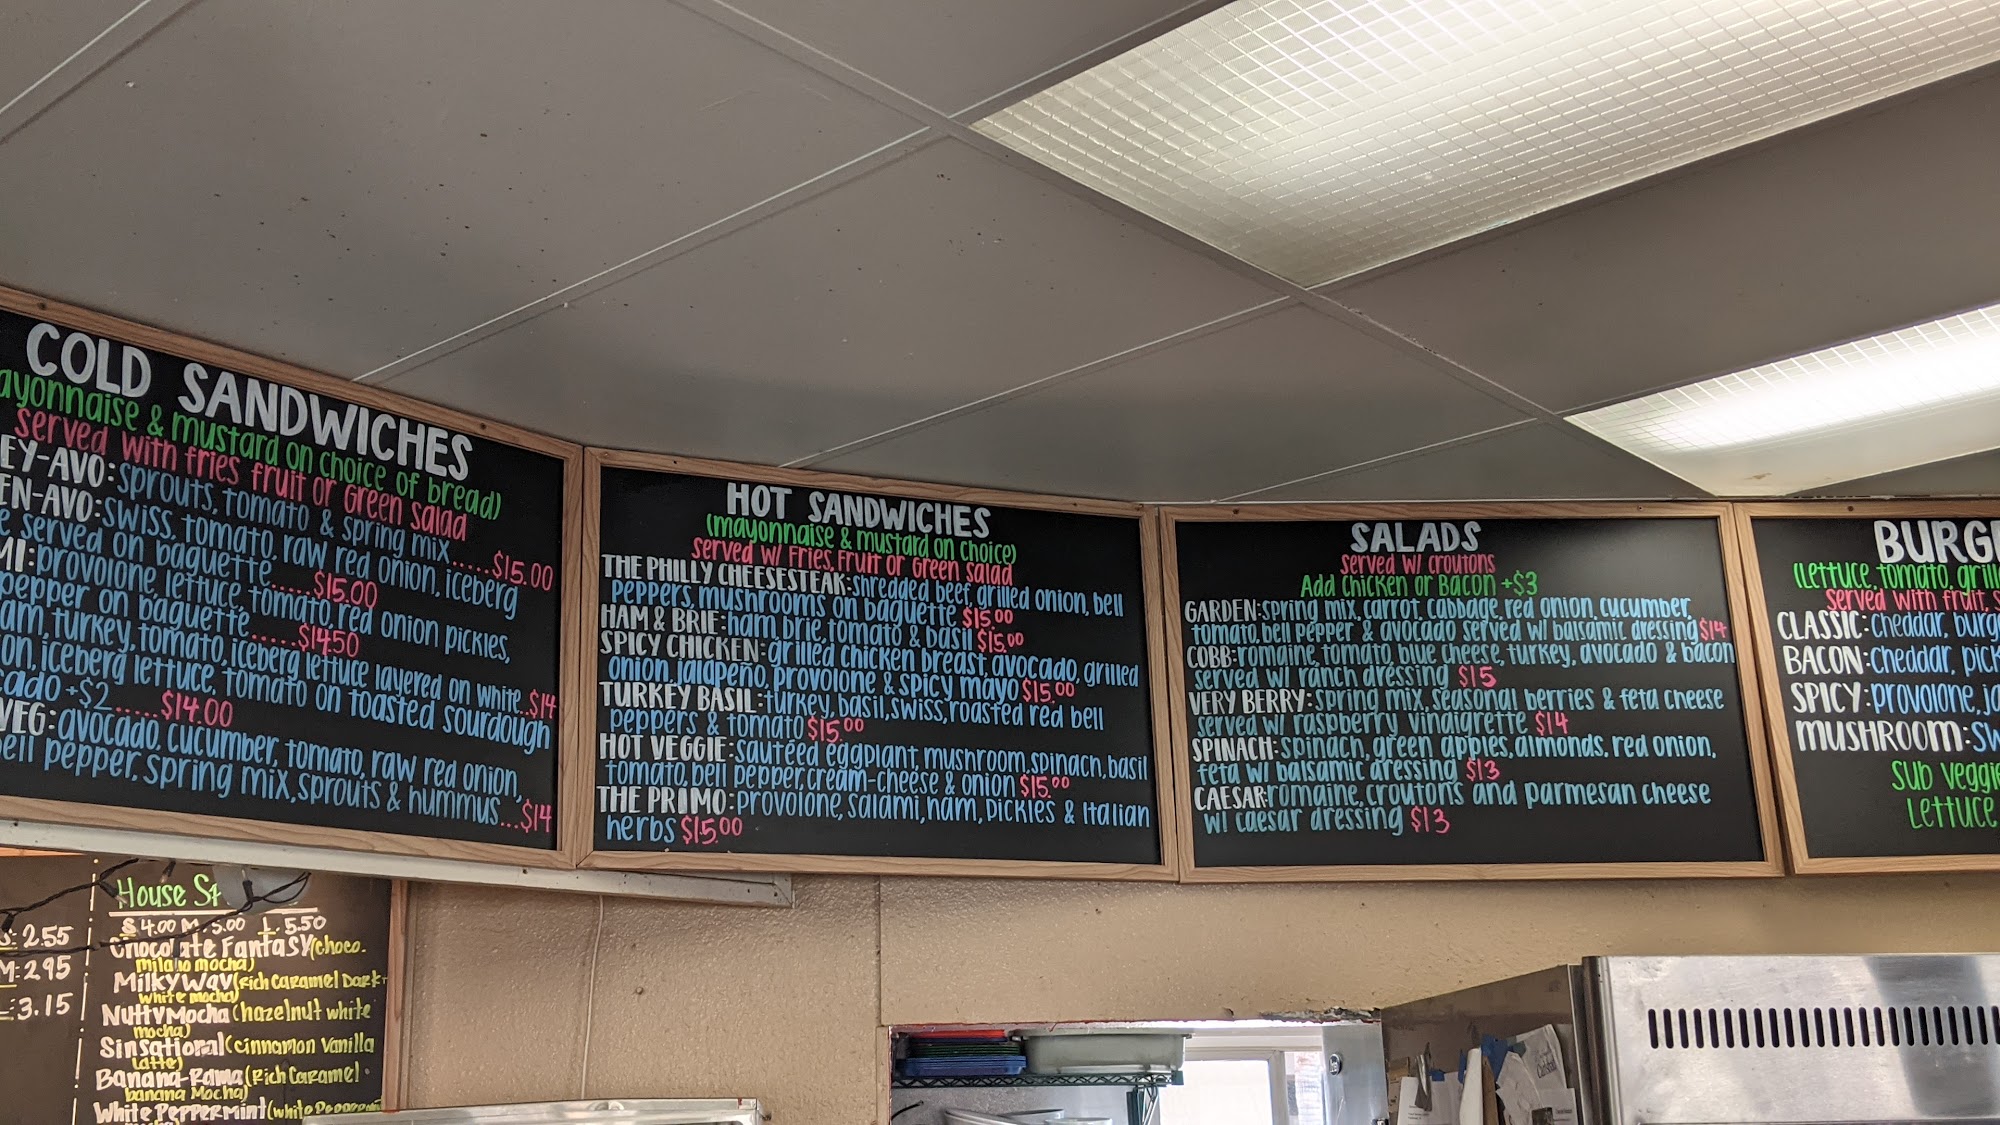 COLD SANDWICHES
ayonnaise & mustard on choice of bread)
served with fries fruit or Green Salad
EY-AVO: sprouts, tomato & spring mix.....$15.00
EN-AVO: swiss, tomato, raw red onion, iceberg
e, served on baguette......$15.00
MI: provolone, lettuce, tomato, red onion pickles,
pepper on baguette......$14.50
am, turkey, tomato, iceberg lettuce layered on white...$14
on, iceberg lettuce, tomato on toasted sourdough
cado +$2.....$14.00
VEG: avocado, cucumber, tomato, raw red onion,
ell pepper, spring mix, sprouts & hummus...$14
HOT SANDWICHES
(mayonnaise & mustard on choice)
Served w/ Fries, Fruit or Green Salad
THE PHILLY CHEESESTEAK: shredded beef, grilled onion, bell
peppers, mushrooms on baguette $15.00
HAM & BRIE: ham, brie, tomato & basil $15.00
SPICY CHICKEN: grilled chicken breast, avocado, grilled
onion, jalapeño, provolone & spicy mayo $15.00
TURKEY BASIL: turkey, basil, swiss, roasted red bell
peppers & tomato $15.00
HOT VEGGIE: sautéed eggplant, mushroom, spinach, basil
tomato, bell pepper, cream-cheese & onion $15.00
THE PRIMO: provolone, salami, ham, pickles & Italian
herbs $15.00
SALADS
Served w/ croutons
Add Chicken or Bacon +$3
GARDEN: spring mix, carrot, cabbage, red onion, cucumber,
tomato, bell pepper & avocado served w/ balsamic dressing $14
COBB: romaine, tomato, blue cheese, turkey, avocado & bacon
served w/ ranch dressing $15
VERY BERRY: spring mix, seasonal berries & feta cheese
served w/ raspberry vinaigrette $14
SPINACH: spinach, green apples, almonds, red onion,
feta w/ balsamic dressing $13
CAESAR: romaine, croutons and parmesan cheese
w/ caesar dressing $13
BURG
(Lettuce, tomato, grill
Served with fruit, S
CLASSIC: cheddar, burg
BACON: cheddar, pick
SPICY: provolone, ja
MUSHROOM: Sw
Sub veggie
Lettuce
S: 2.55
M: 2.95
L: 3.15
House S
S 4.00 M 5.00 L 5.50
Chocolate Fantasy (choco-
milano mocha)
Milky Way (Rich Caramel Dark+
white mocha)
Nutty Mocha (hazelnut white
mocha)
Sinsational (cinnamon vanilla
latte)
Banana-Rama (Rich Caramel
banana Mocha)
White Peppermint (white Peppermint